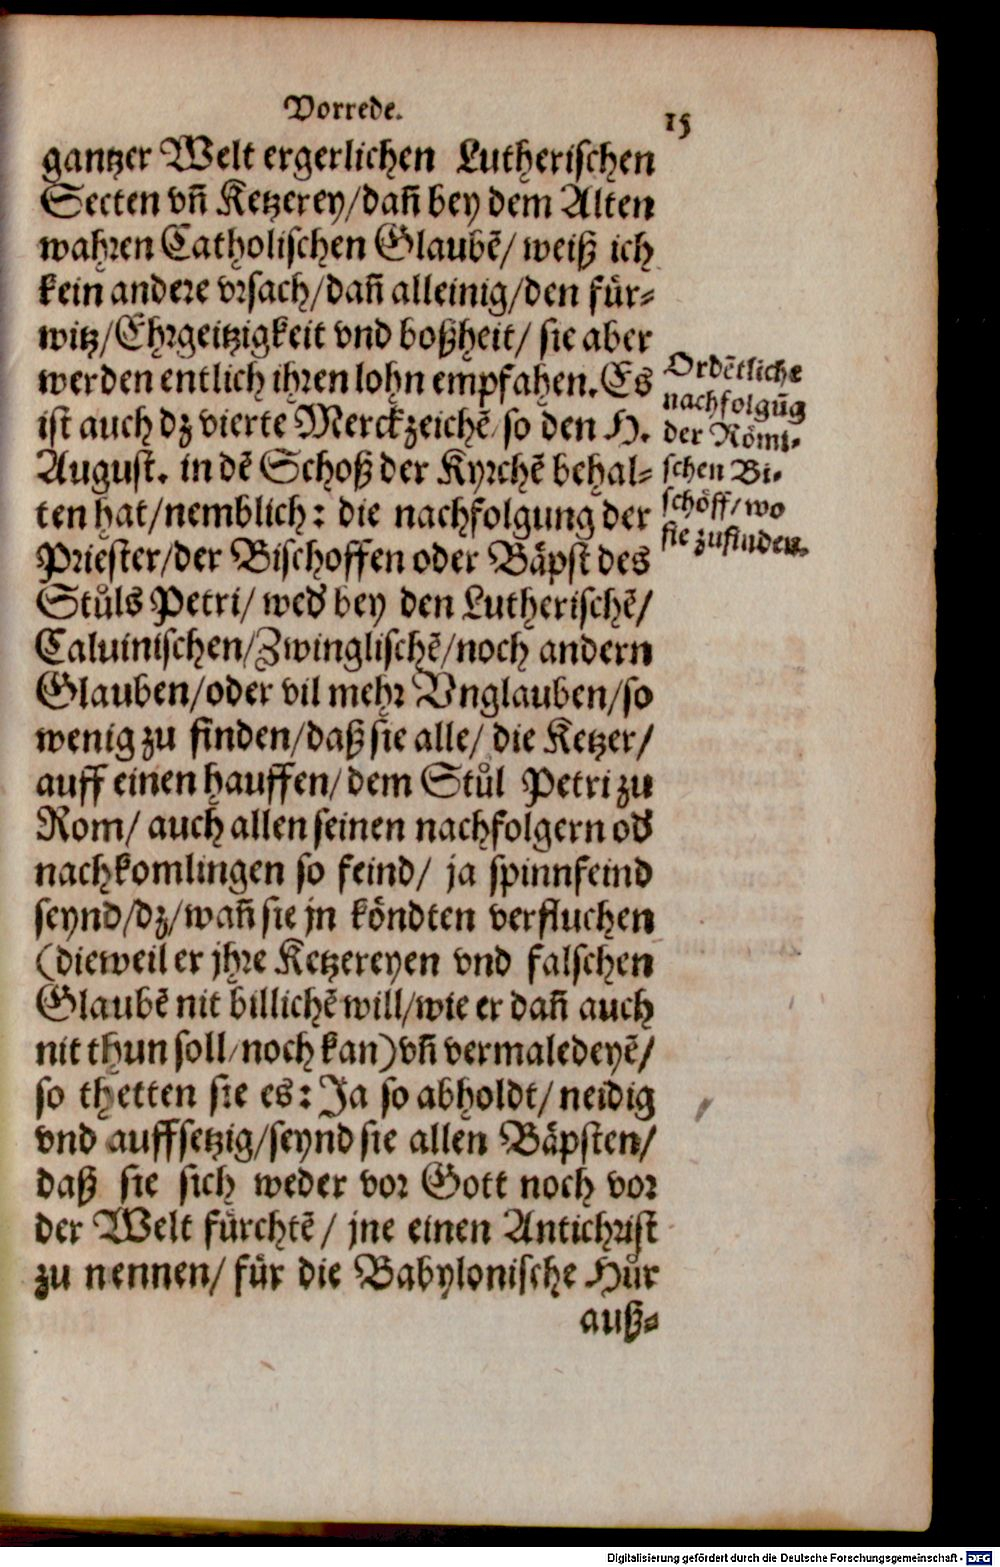 Vorrede.
15
gantzer Welt ergerlichen Lutherischen
Secten vñ Ketzerey/dañ bey dem Alten
wahren Catholischen Glaubē/ weiß ich
kein andere vrsach/dañ alleinig/den für-
witz/Ehrgeitzigkeit vnd boßheit/ sie aber
werden entlich ihren lohn empfahen. Es
ist auch dz vierte Merckzeichē/so den H.
August. in dē Schoß der Kyrchē behal-
ten hat/nemblich: die nachfolgung der
Priester/der Bischoffen oder Bäpst des
Stůls Petri/ wed' bey den Lutherischē/
Caluinischen/Zwinglischē/noch andern
Glauben/oder vil mehr Vnglauben/so
wenig zu finden/daß sie alle/ die Ketzer/
auff einen hauffen/dem Stůl Petri zu
Rom/ auch allen seinen nachfolgern od'
nachkomlingen so feind/ ja spinnfeind
seynd/dz/wañ sie jn köndten verfluchen
(dieweil er jhre Ketzereyen vnd falschen
Glaubē nit billichē will/wie er dañ auch
nit thun soll/noch kan)vñ vermaledeyē/
so thetten sie es: Ja so abholdt/ neidig
vnd auffsetzig/seynd sie allen Bäpsten/
daß sie sich weder vor Gott noch vor
der Welt fürchtē/ jne einen Antichrist
zu nennen/ für die Babylonische Hůr
auß-
Ordētliche
nachfolgūg
der Römi-
schen Bi-
schöff/wo
sie zufinden.
Digitalisierung gefördert durch die Deutsche Forschungsgemeinschaft - DFG